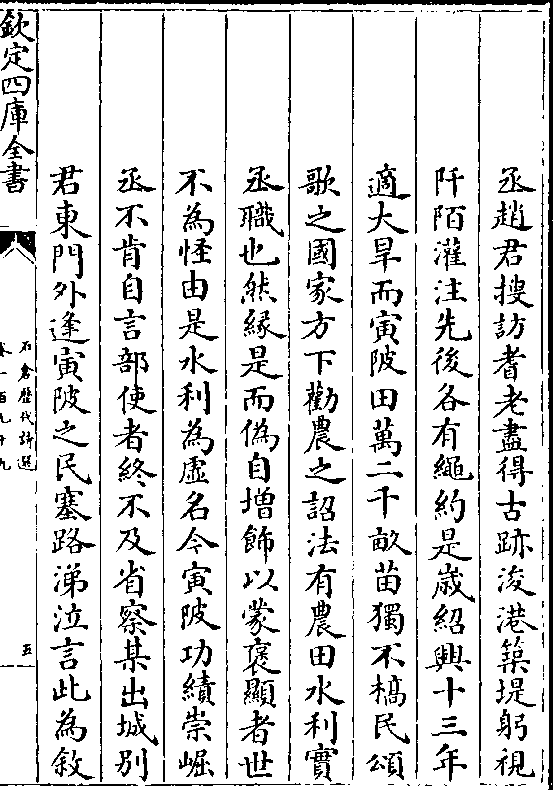 丞趙君搜訪耆老盡得古跡浚港築堤躬視
阡陌灌注先後各有繩約是歲紹興十三年
適大旱而寅陂田萬二千畝苗獨不槁民頌
歌之國家方下勸農之詔法有農田水利實
丞職也然緣是而偽自增飾以蒙襃顯者世
不為怪由是水利為虛名今寅陂功績崇崛
丞不肯自言部使者終不及省察某出城別
君東門外逢寅陂之民塞路涕泣言此為敘
欽定四庫全書
石倉歷代詩選
卷一百九十九
五